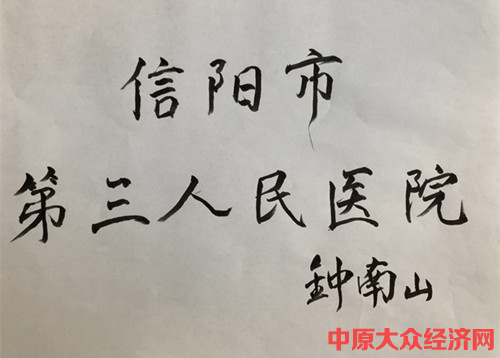 信阳市
第三人民医院
鈡南山
中原大众经济网